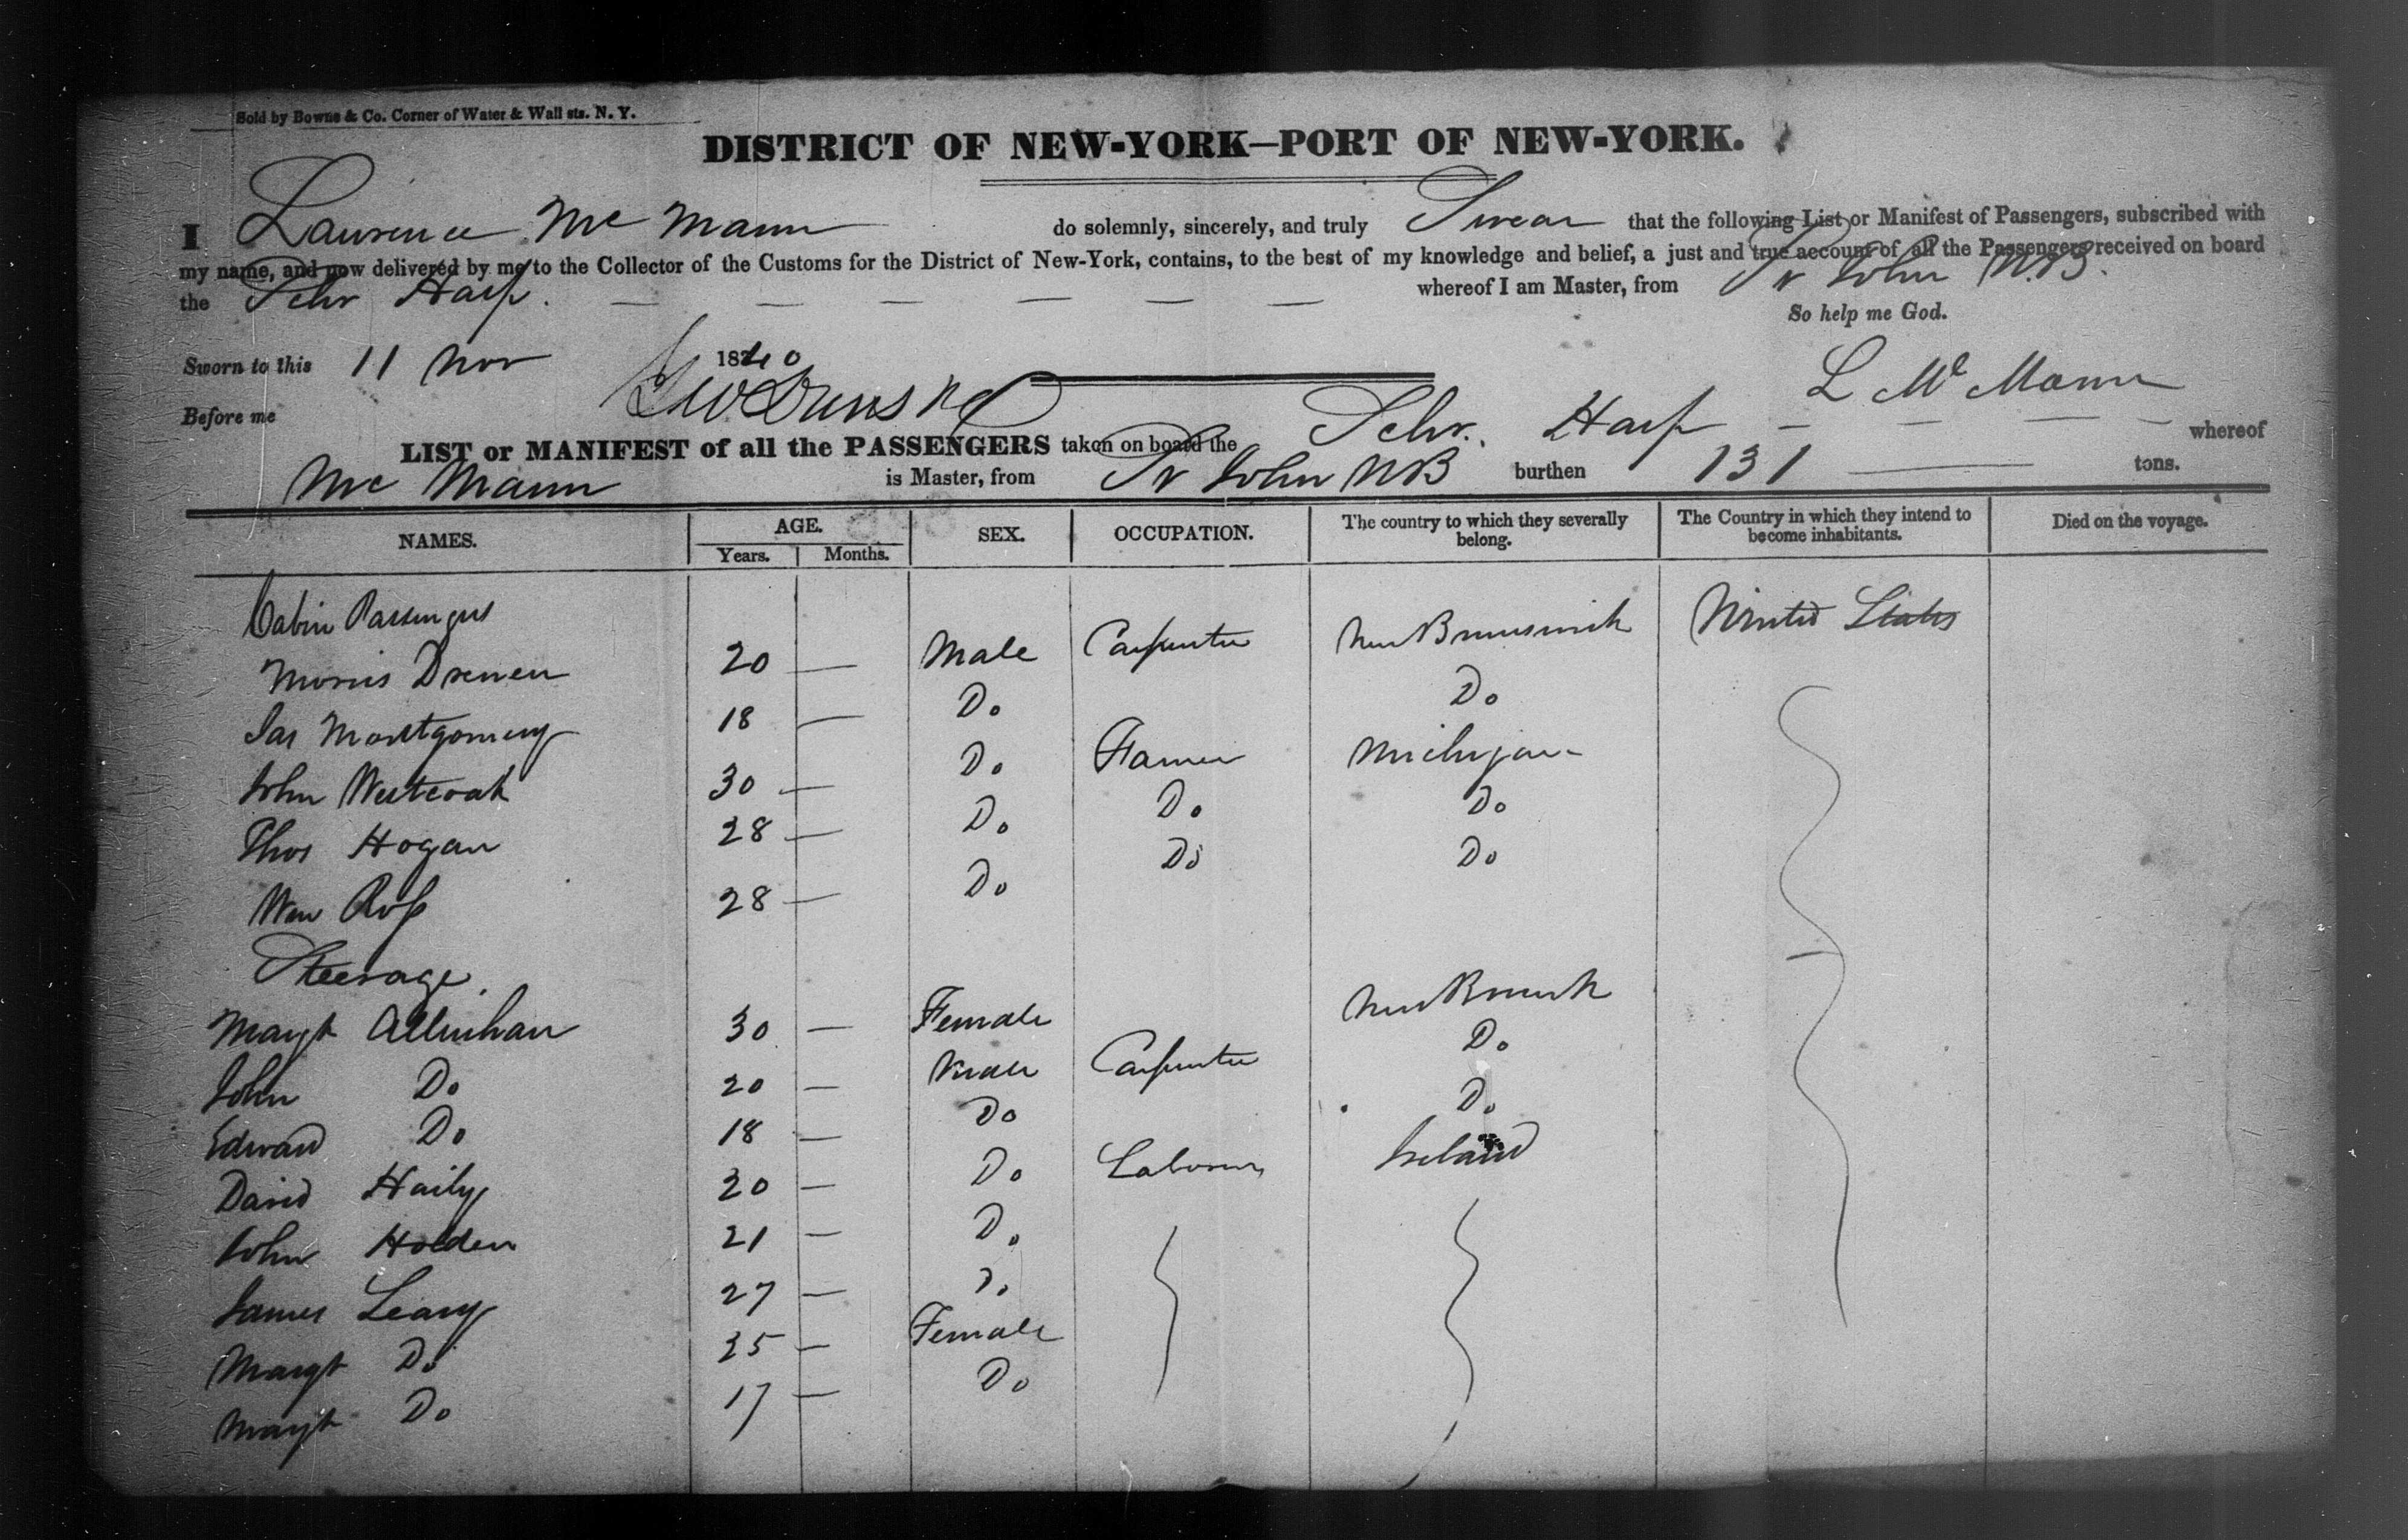 Sold by Bowne & Co. Corner of Water & Wall sts. N. Y.
DISTRICT OF NEW-YORK—PORT OF NEW-YORK.
I Lawrence Mc Mann do solemnly, sincerely, and truly Swear that the following List or Manifest of Passengers, subscribed with
my name, and now delivered by me to the Collector of the Customs for the District of New-York, contains, to the best of my knowledge and belief, a just and true account of all the Passengers received on board
the Schr Harp. whereof I am Master, from St John N.B.
So help me God.
Sworn to this 11 Nov 1840
L Mc Mann
Before me
LIST or MANIFEST of all the PASSENGERS taken on board the Schr. Harp whereof
Mc Mann is Master, from St John NB burthen 131 tons.
NAMES. AGE. SEX. OCCUPATION. The country to which they severally belong. The Country in which they intend to become inhabitants. Died on the voyage.
Years. Months.
Cabin Passengers
Morris Drenen 20 — Male Carpenter New Brunswick United States
Jas Montgomery 18 — Do Do
John Westcoat 30 — Do Farmer Michigan
Thos Hogan 28 — Do Do Do
Wm Ross 28 — Do Do Do
Steerage.
Margt Allinhan 30 — Female New Brunsk
John Do 20 — Male Carpenter Do
Edward Do 18 — Do Do
David Haily 20 — Do Laborer Ireland
John Holden 21 — Do
James Leary 27 — Do
Margt Do 25 — Female
Margt Do 17 — Do